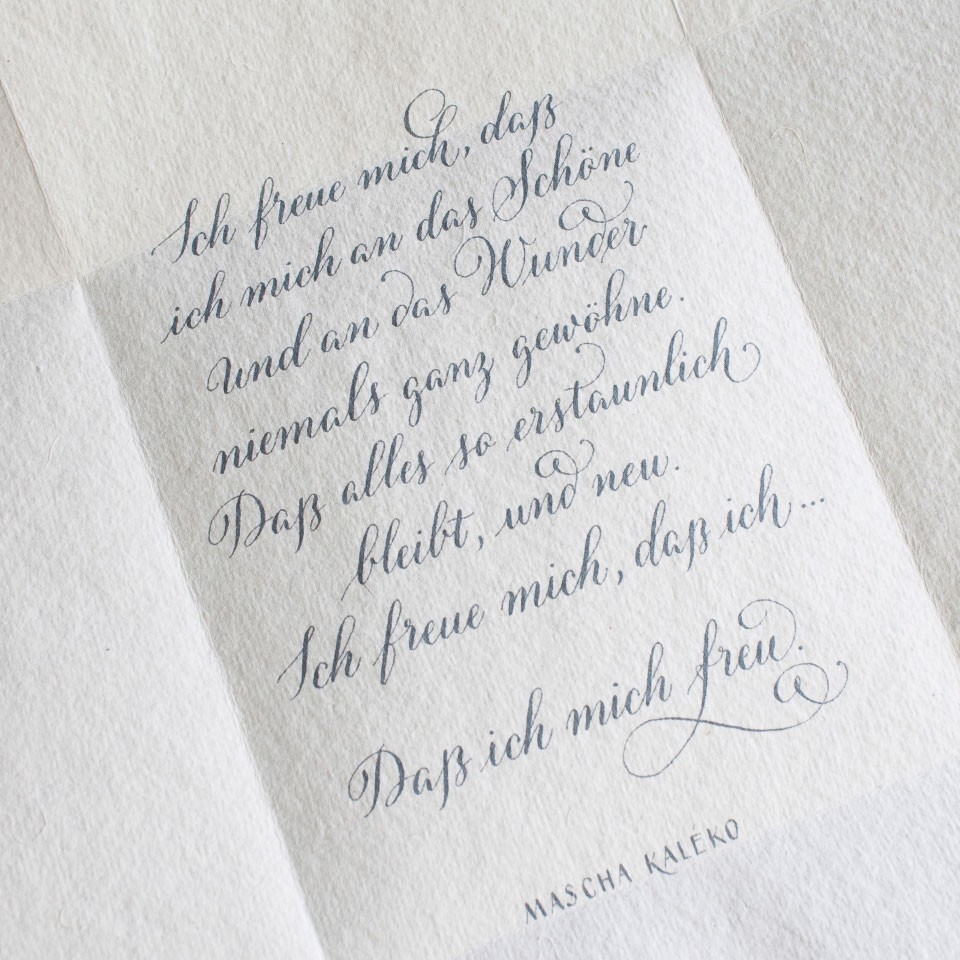 Ich freue mich, daß
ich mich an das Schöne
und an das Wunder
niemals ganz gewöhne.
Daß alles so erstaunlich
bleibt, und neu.
Ich freue mich, daß ich...
Daß ich mich freu.
MASCHA KALÉKO